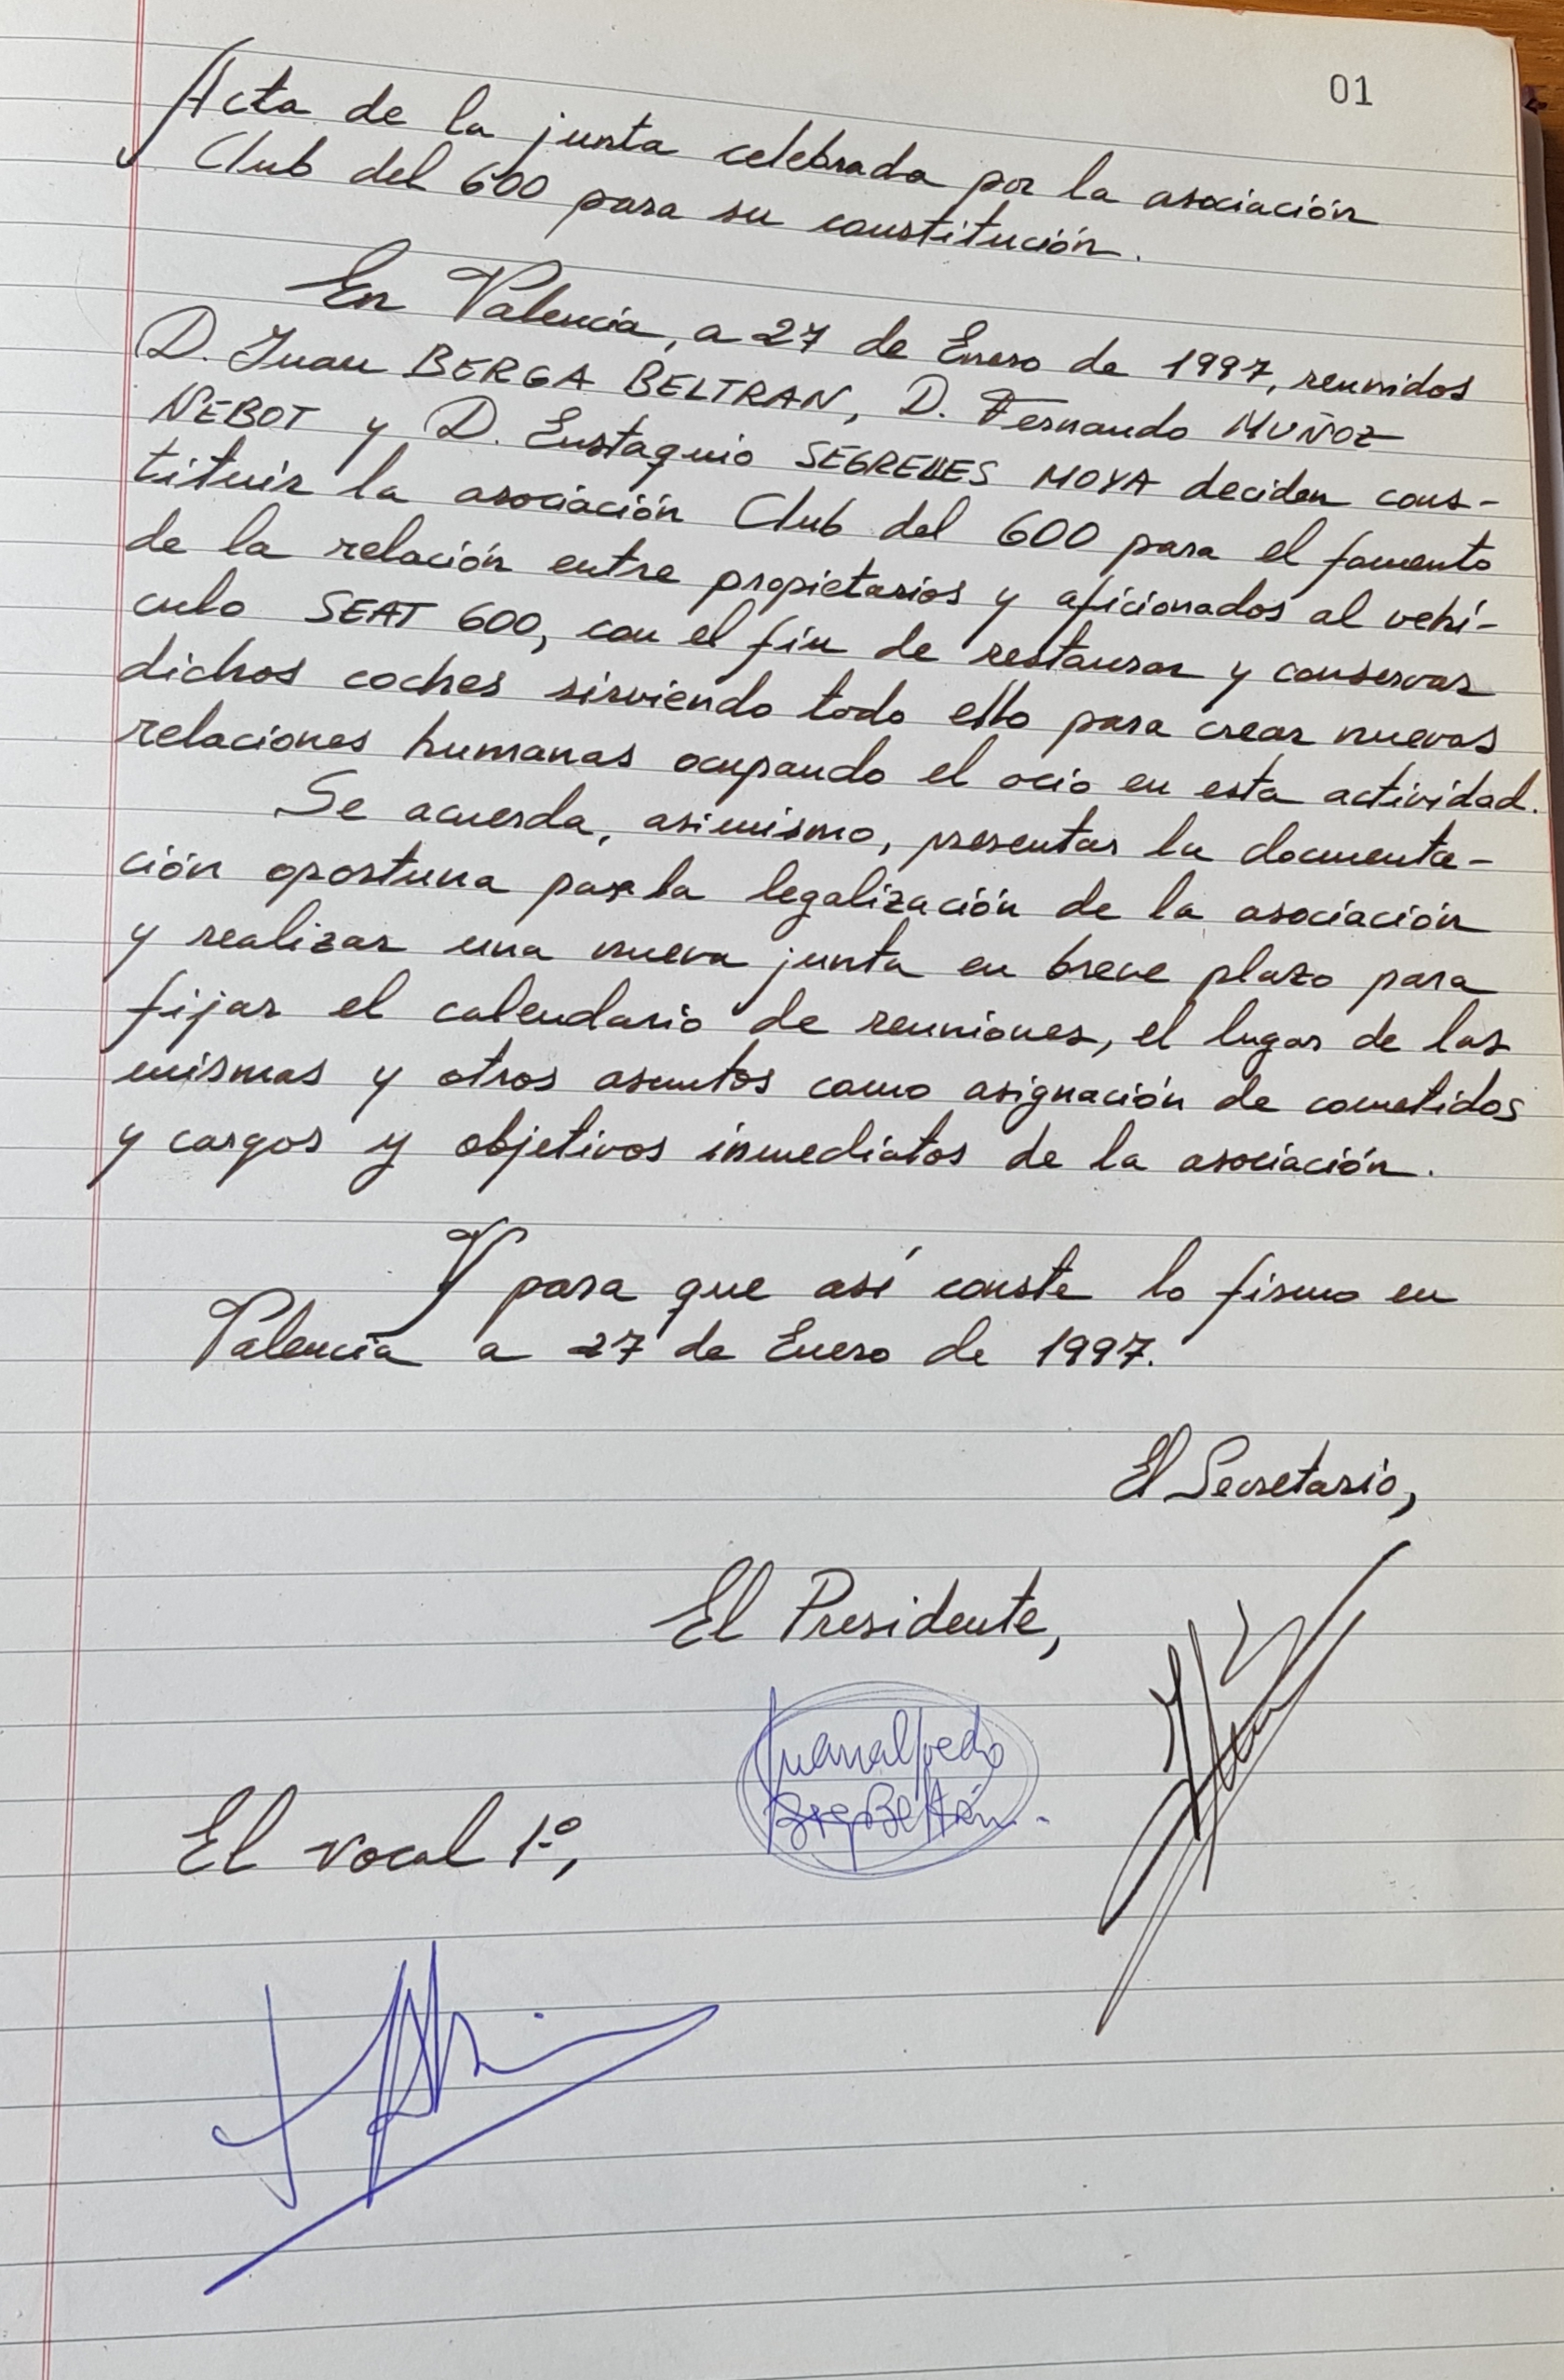 01
Acta de la junta celebrada por la asociación
Club del 600 para su constitución.
En Valencia, a 27 de Enero de 1997, reunidos
D. Juan BERGA BELTRAN, D. Fernando MUÑOZ
NEBOT y D. Eustaquio SEGRELLES MOYA deciden cons-
tituir la asociación Club del 600 para el fomento
de la relación entre propietarios y aficionados al vehí-
culo SEAT 600, con el fin de restaurar y conservar
dichos coches sirviendo todo ello para crear nuevas
relaciones humanas ocupando el ocio en esta actividad.
Se acuerda, asimismo, presentar la documenta-
ción oportuna para la legalización de la asociación
y realizar una nueva junta en breve plazo para
fijar el calendario de reuniones, el lugar de las
mismas y otros asuntos como asignación de cometidos
y cargos y objetivos inmediatos de la asociación.
Y para que así conste lo firmo en
Valencia a 27 de Enero de 1997.
El Secretario,
El Presidente,
Juan Alfredo
Berga Beltrán
El vocal 1º,